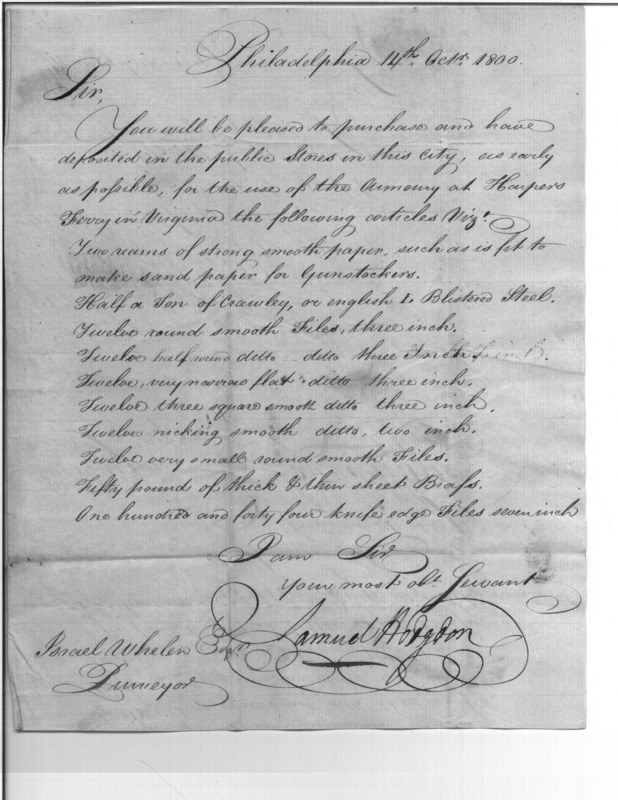 Philadelphia 14th Octr. 1800.
Sir,
You will be pleased to purchase and have
deposited in the public Stores in this City, as early
as possible, for the use of the Armoury at Harpers
Ferry in Virginia the following articles Vizt.
Two reams of strong smooth paper, such as is fit to
make sand paper for Gunstockers.
Half a Ton of Crawley, or english L Blistered Steel.
Twelve round smooth Files, three inch.
Twelve half round ditto ditto three inch.
Twelve, very narrow flat ditto three inch.
Twelve three square smooth ditto three inch.
Twelve nicking smooth ditto, two inch.
Twelve very small round smooth Files.
Fifty pound of thick & thin sheet Brass.
One hundred and forty four knife edge Files seven inch
I am Sir
Your most obt. Servant
Samuel Hodgdon
Israel Whelen Esqr.
Purveyor